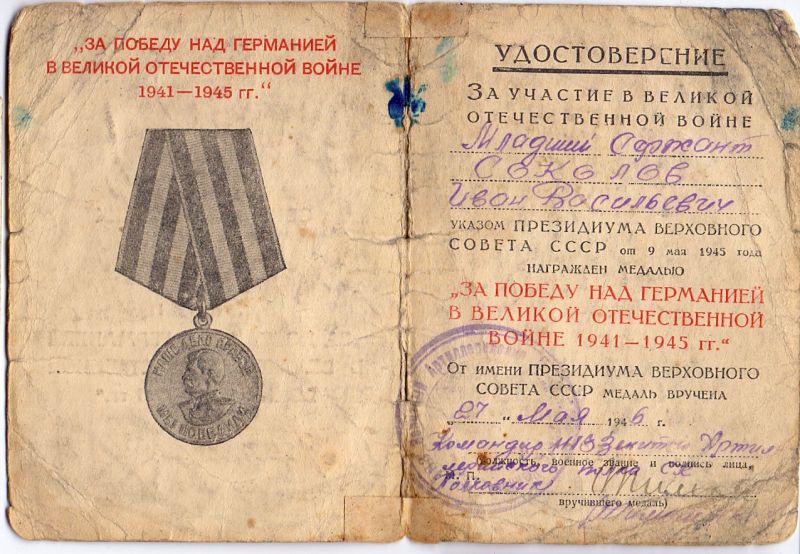 „ЗА ПОБЕДУ НАД ГЕРМАНИЕЙ
В ВЕЛИКОЙ ОТЕЧЕСТВЕННОЙ ВОЙНЕ
1941—1945 гг.“
НАШЕ ДЕЛО ПРАВОЕ
МЫ ПОБЕДИЛИ
УДОСТОВЕРЕНИЕ
ЗА УЧАСТИЕ В ВЕЛИКОЙ
ОТЕЧЕСТВЕННОЙ ВОЙНЕ
Младший Сержант
СОКОЛОВ
Иван Васильевич
УКАЗОМ ПРЕЗИДИУМА ВЕРХОВНОГО
СОВЕТА СССР от 9 мая 1945 года
НАГРАЖДЕН МЕДАЛЬЮ
„ЗА ПОБЕДУ НАД ГЕРМАНИЕЙ
В ВЕЛИКОЙ ОТЕЧЕСТВЕННОЙ
ВОЙНЕ 1941—1945 гг.“
От имени ПРЕЗИДИУМА ВЕРХОВНОГО
СОВЕТА СССР МЕДАЛЬ ВРУЧЕНА
„27“ Мая 1946 г.
Командир Зенитно Артил
(должность, военное звание и подпись лица,
лерийского полка
М. П.
Полковник
вручившего медаль)